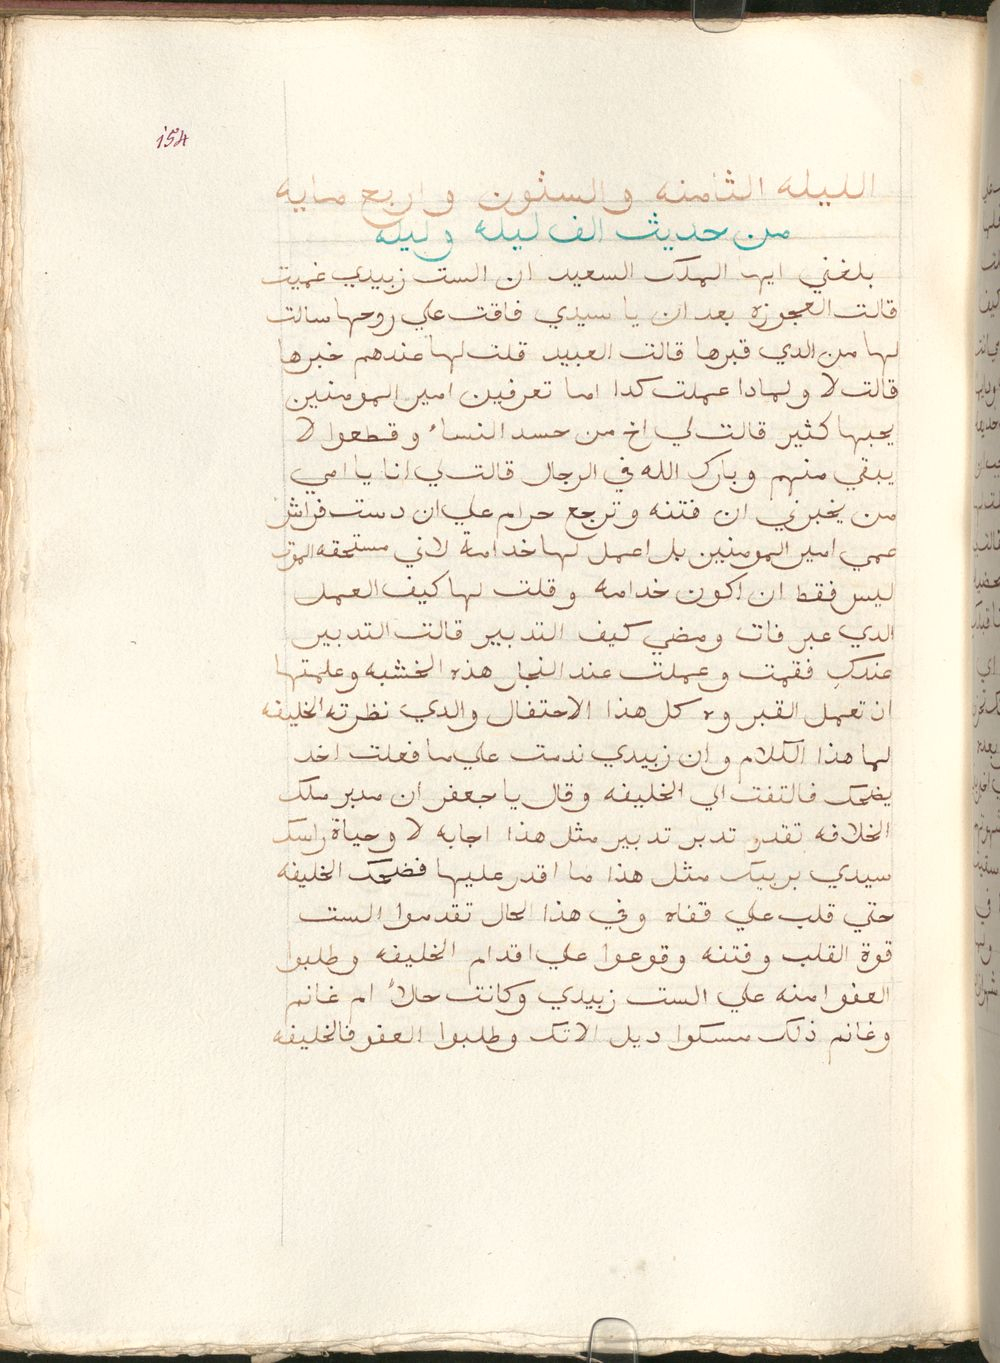 154
الليله الثامنه والستون واربع مايه
من حديث الف ليله وليله
بلغني ايها الملك السعيد ان الست زبيدي غميت
قالت العجوزه بعد ان يا سيدي فاقت علي روحها سالت
لها من الدي قبرها قالت العبيد قلت لها عندهم خبرها
قالت لا ولمادا عملت كدا اما تعرفين امير المومنين
يحبها كثير قالت لي اخ من حسد النساء وقطعوا لا
يبقي منهم وبارك الله في الرجال قالت لي انا يا امي
من يخبرني ان فتنه وترجع حرام علي ان دست فراش
عمي امير المومنين بل اعمل لها خدامة لاني مستحقه الموت
ليس فقط ان اكون خدامه وقلت لها كيف العمل
الدي عبر فات ومضي كيف التدبير قالت التدبير
عندك فقمت وعملت عند النجار هذه الخشبه وعلمتها
ان تعمل القبر وه كل هذا الاحتفال والدي نظرته الخليفه
لها هذا الكلام وان زبيدي ندمت علي ما فعلت اخد
يضحك فالتفت الي الخليفه وقال يا جعفر ان مدبر ملك
الخلافه تقدر تدبر تدبير مثل هذا اجابه لا وحياة راسك
سيدي بربيك مثل هذا ما اقدر عليها فضحك الخليفه
حتي قلب علي قفاه وفي هذا الحال تقدموا الست
قوة القلب وفتنه وقوعوا علي اقدام الخليفه وطلبوا
العفو امنه علي الست زبيدي وكانت حالاً ام غانم
وغانم ذلك مسكوا ديل الاتك وطلبوا العفو فالخليفه